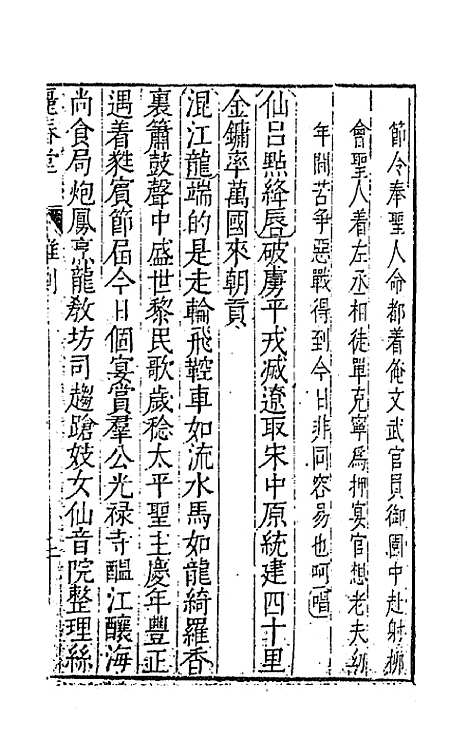 節令奉聖人命都着俺文武官員御園中赴射柳
會聖人着左丞相徒單克寧爲押宴官想老夫幼
年間苦爭惡戰得到今日非同容易也呵唱
仙吕點絳唇破虜平戎滅遼取宋中原統建四十里
金鏞率萬國來朝貢
混江龍端的是走輪飛鞚車如流水馬如龍綺羅香
裏簫鼓聲中盛世黎民歌歲稔太平聖主慶年豐正
遇着蕤賓節屆今日個宴賞羣公光禄寺醖江釀海
尚食局炮鳳烹龍敎坊司趨蹌妓女仙音院整理絲
麗春堂 雜劇